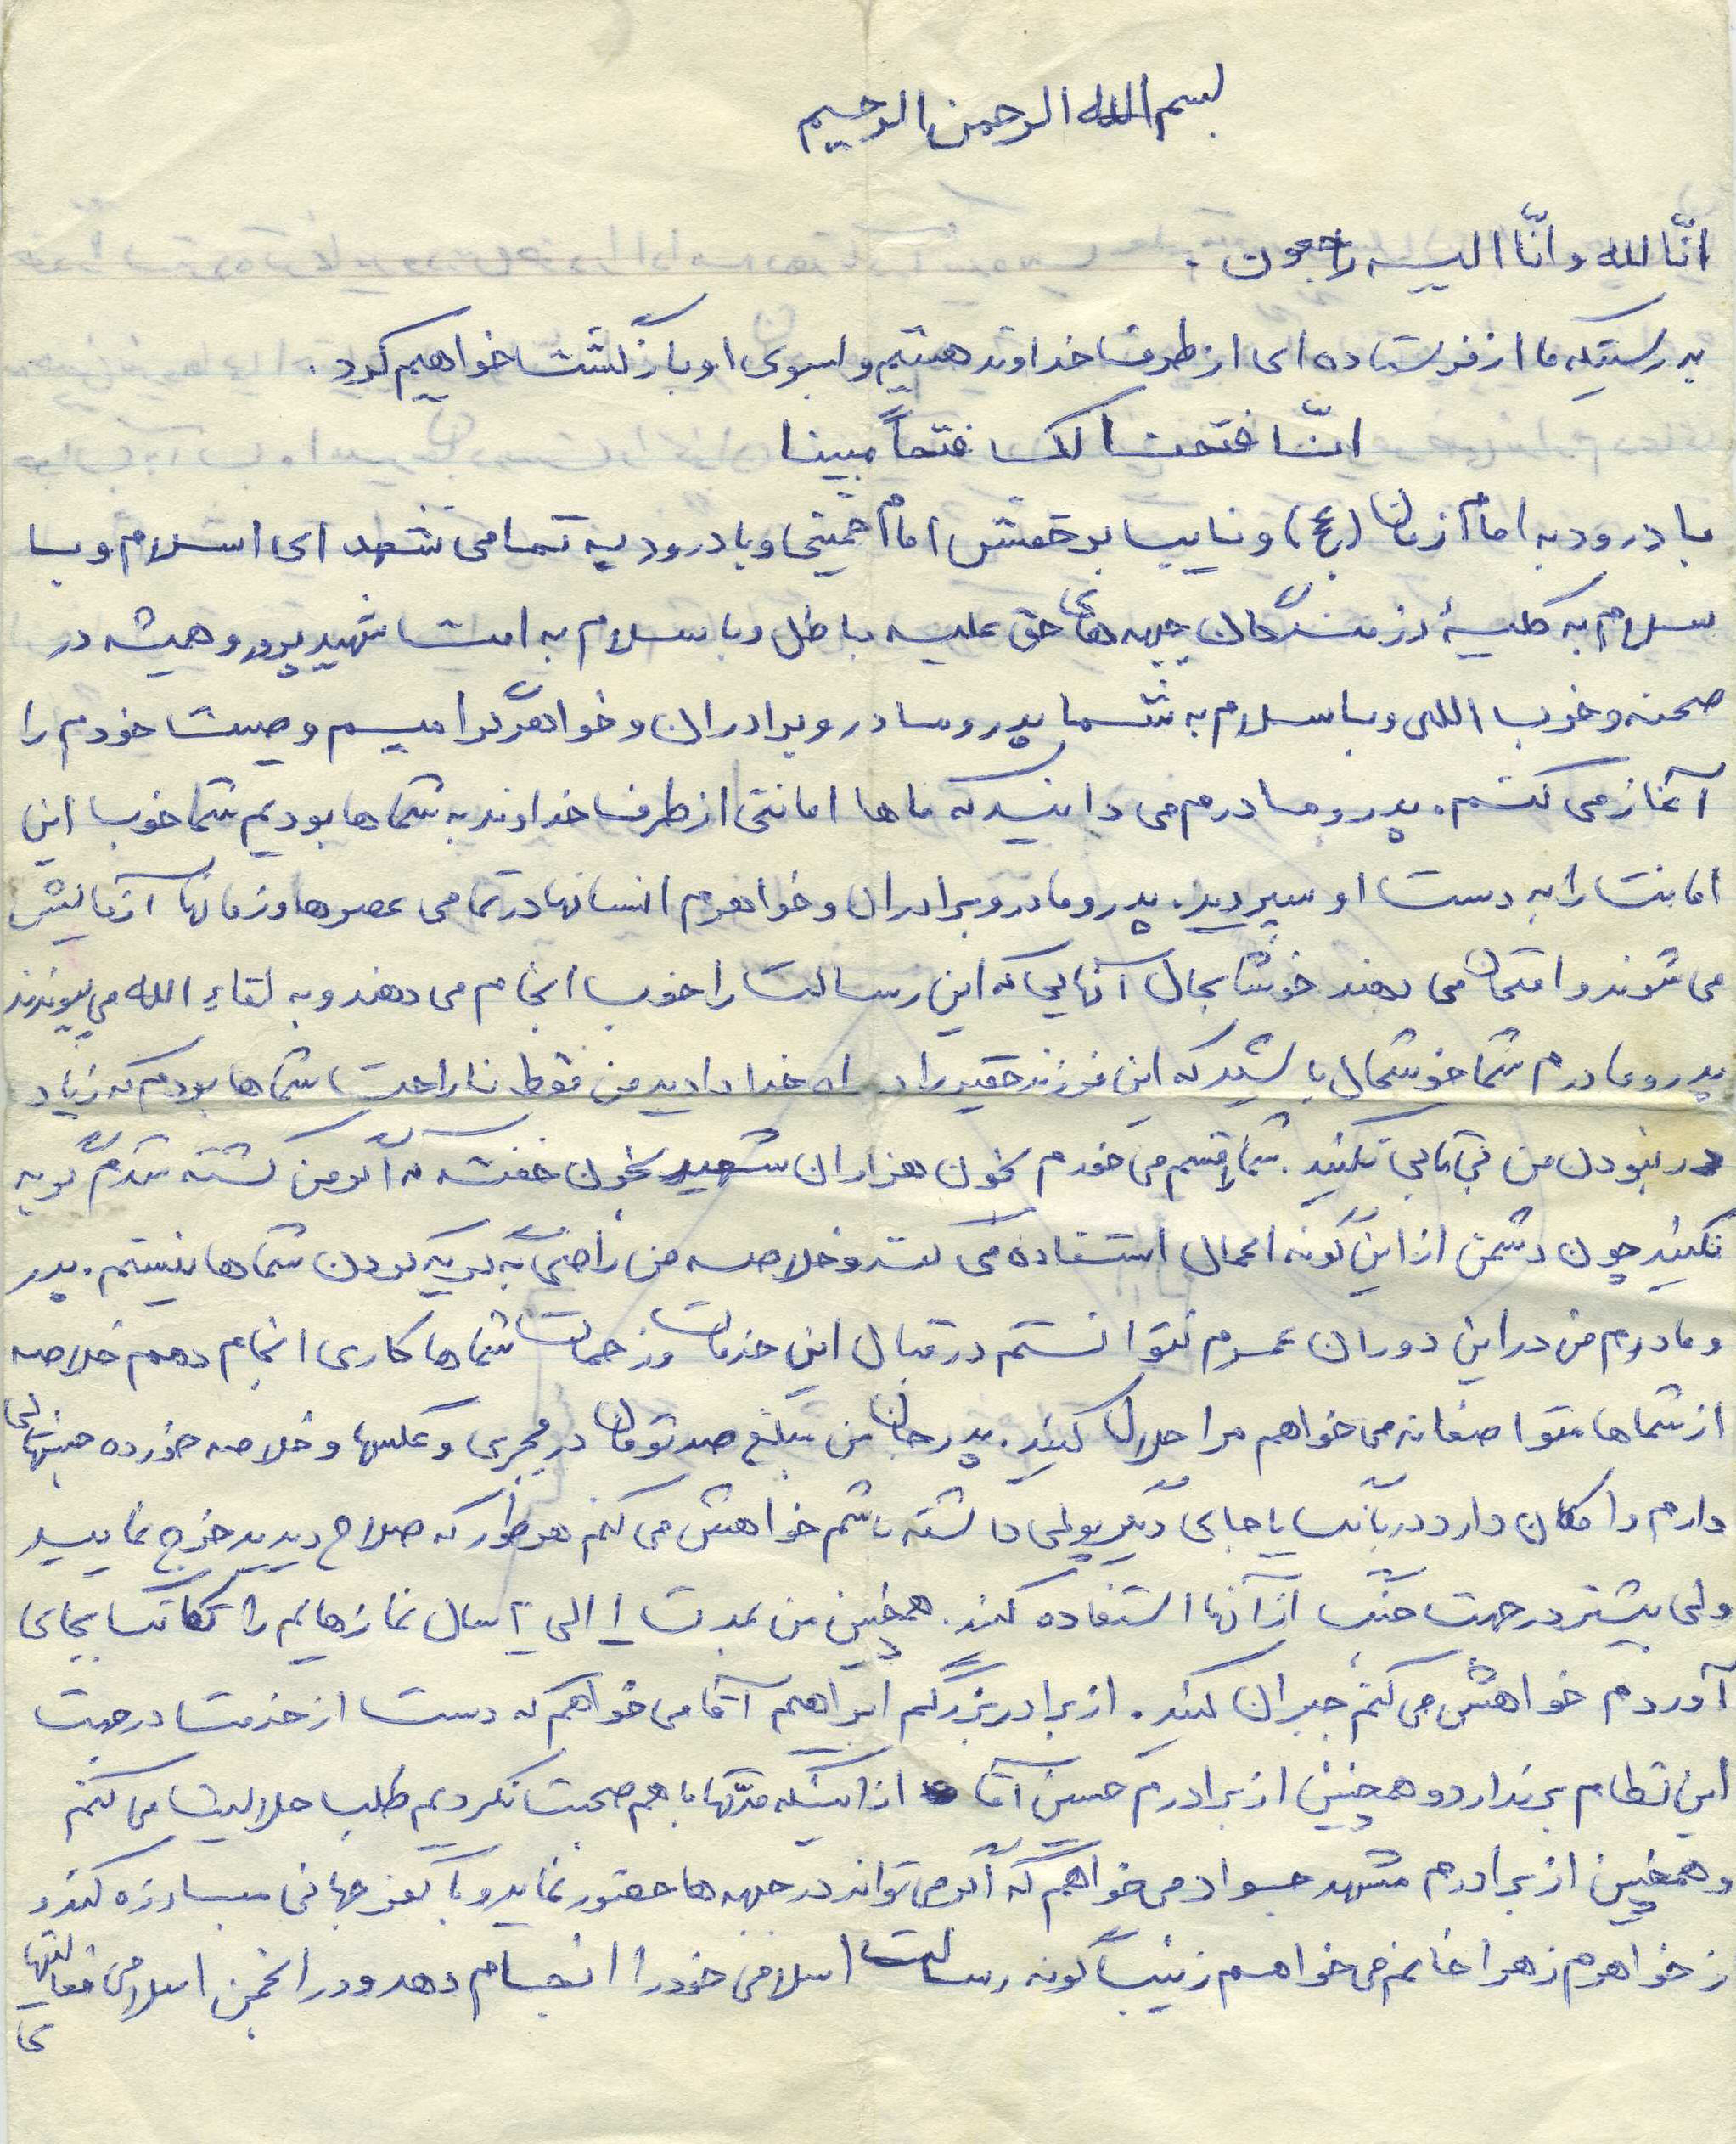 بسم الله الرحمن الرحیم
انّا لله و انّا الیه راجعون.
بدرستیکه ما از فرستاده ای از طرف خداوند هستیم و بسوی او بازگشت خواهیم کرد.
انّا فتحنا لک فتحاً مبینا
با درود به امام زمان (عج) و نایب برحقش امام خمینی و با درود به تمامی شهدای اسلام و با
سلام به کلیهٔ رزمندگان جبهه های حق علیه باطل و با سلام به امت شهید پرور و همیشه در
صحنه و حزب اللهی و با سلام به شما پدر و مادر و برادران و خواهر گرامیم وصیت خودم را
آغاز می کنم. پدر و مادرم می دانید که ماها امانتی از طرف خداوند به شماها بودیم شما خوب این
امانت را به دست او سپردید. پدر و مادر و برادران و خواهرم انسانها در تمامی عصرها و زمانها آزمایش
می شوند و امتحان می دهند خوشا بحال آنهایی که این رسالت را خوب انجام می دهند و به لقاء الله می پیوندند
پدر و مادرم شما خوشحال باشید که این فرزند حقیر را در راه خدا دادید من فقط ناراحت شماها بودم که زیاد
در نبودن من بی تابی نکنید. شما را قسم می خورم بخون هزاران شهید بخون خفته که اگر من کشته شدم گریه
نکنید چون دشمن از این گونه اعمال استفاده می کند و خلاصه من راضی به گریه کردن شماها نیستم. پدر
و مادرم من در این دوران عمرم نتوانستم در قبال این خدمات و زحمات شماها کاری انجام دهم خلاصه
از شماها متواضعانه می خواهم مرا حلال کنید. پدر جان من مبلغ صد تومان در مجری و عکسها و خلاصه خورده جنسهائی
دارم و امکان دارد در بانک یا جای دیگر پولی داشته باشم خواهش می کنم هر طور که صلاح دیدید خرج نمایید
ولی بیشتر در جهت جنگ از آنها استفاده کنید. همچنین من بمدت ۱ الی ۲ سال نمازهایم را تکاتک بجای
آوردم خواهش می کنم جبران کنید. از برادر بزرگم ابراهیم آقا می خواهم که دست از خدمت در جهت
این نظام برندارد و همچنین از برادرم حسین آقا از اینکه مدّتها با هم صحبت نکردیم طلب حلالیت می کنم
و همچنین از برادرم مشهد جواد می خواهم که اگر می تواند در جبهه ها حضور نماید و با کفر جهانی مبارزه کند و
از خواهرم زهرا خانم می خواهم زینب گونه رسالت اسلامی خود را انجام دهد و در انجمن اسلامی فعالیتهای